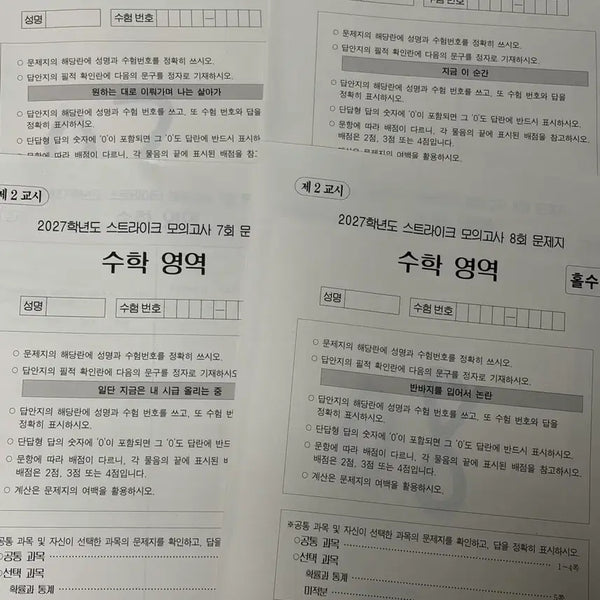 성명
수험 번호
–
○ 문제지의 해당란에 성명과 수험번호를 정확히 쓰시오.
○ 답안지의 필적 확인란에 다음의 문구를 정자로 기재하시오.
원하는 대로 이뤄가며 나는 살아가
○ 답안지의 해당란에 성명과 수험 번호를 쓰고, 또 수험 번호와 답을
정확히 표시하시오.
○ 단답형 답의 숫자에 '0'이 포함되면 그 '0'도 답란에 반드시 표시하
○ 문항에 따라 배점이 다르니, 각 물음의 끝에 표시된 배점을 참
성명
수험 번호
–
○ 문제지의 해당란에 성명과 수험번호를 정확히 쓰시오.
○ 답안지의 필적 확인란에 다음의 문구를 정자로 기재하시오.
지금 이 순간
○ 답안지의 해당란에 성명과 수험 번호를 쓰고, 또 수험 번호와 답을
정확히 표시하시오.
○ 단답형 답의 숫자에 '0'이 포함되면 그 '0'도 답란에 반드시 표시하시오.
○ 문항에 따라 배점이 다르니, 각 물음의 끝에 표시된 배점을 참고하시오.
배점은 2점, 3점 또는 4점입니다.
문제지의 여백을 활용하시오.
제 2 교시
2027학년도 스트라이크 모의고사 7회 문
수학 영역
성명
수험 번호
–
○ 문제지의 해당란에 성명과 수험번호를 정확히 쓰시오.
○ 답안지의 필적 확인란에 다음의 문구를 정자로 기재하시오
일단 지금은 내 시급 올리는 중
○ 답안지의 해당란에 성명과 수험 번호를 쓰고, 또 수험 번
정확히 표시하시오.
○ 단답형 답의 숫자에 '0'이 포함되면 그 '0'도 답란에 반드
○ 문항에 따라 배점이 다르니, 각 물음의 끝에 표시된 배
배점은 2점, 3점 또는 4점입니다.
○ 계산은 문제지의 여백을 활용하시오.
공통 과목 및 자신이 선택한 과목의 문제지를 확인하고, 답을
○공통 과목
○선택 과목
확률과 통계
제 2 교시
2027학년도 스트라이크 모의고사 8회 문제지
수학 영역
홀수
성명
수험 번호
–
○ 문제지의 해당란에 성명과 수험번호를 정확히 쓰시오.
○ 답안지의 필적 확인란에 다음의 문구를 정자로 기재하시오.
반바지를 입어서 논란
○ 답안지의 해당란에 성명과 수험 번호를 쓰고, 또 수험 번호와 답을
정확히 표시하시오.
○ 단답형 답의 숫자에 '0'이 포함되면 그 '0'도 답란에 반드시 표시하시오.
○ 문항에 따라 배점이 다르니, 각 물음의 끝에 표시된 배점을 참고하시오.
배점은 2점, 3점 또는 4점입니다.
○ 계산은 문제지의 여백을 활용하시오.
※공통 과목 및 자신이 선택한 과목의 문제지를 확인하고, 답을 정확히 표시하시오.
○공통 과목 1~4쪽
○선택 과목
확률과 통계 5쪽
미적분